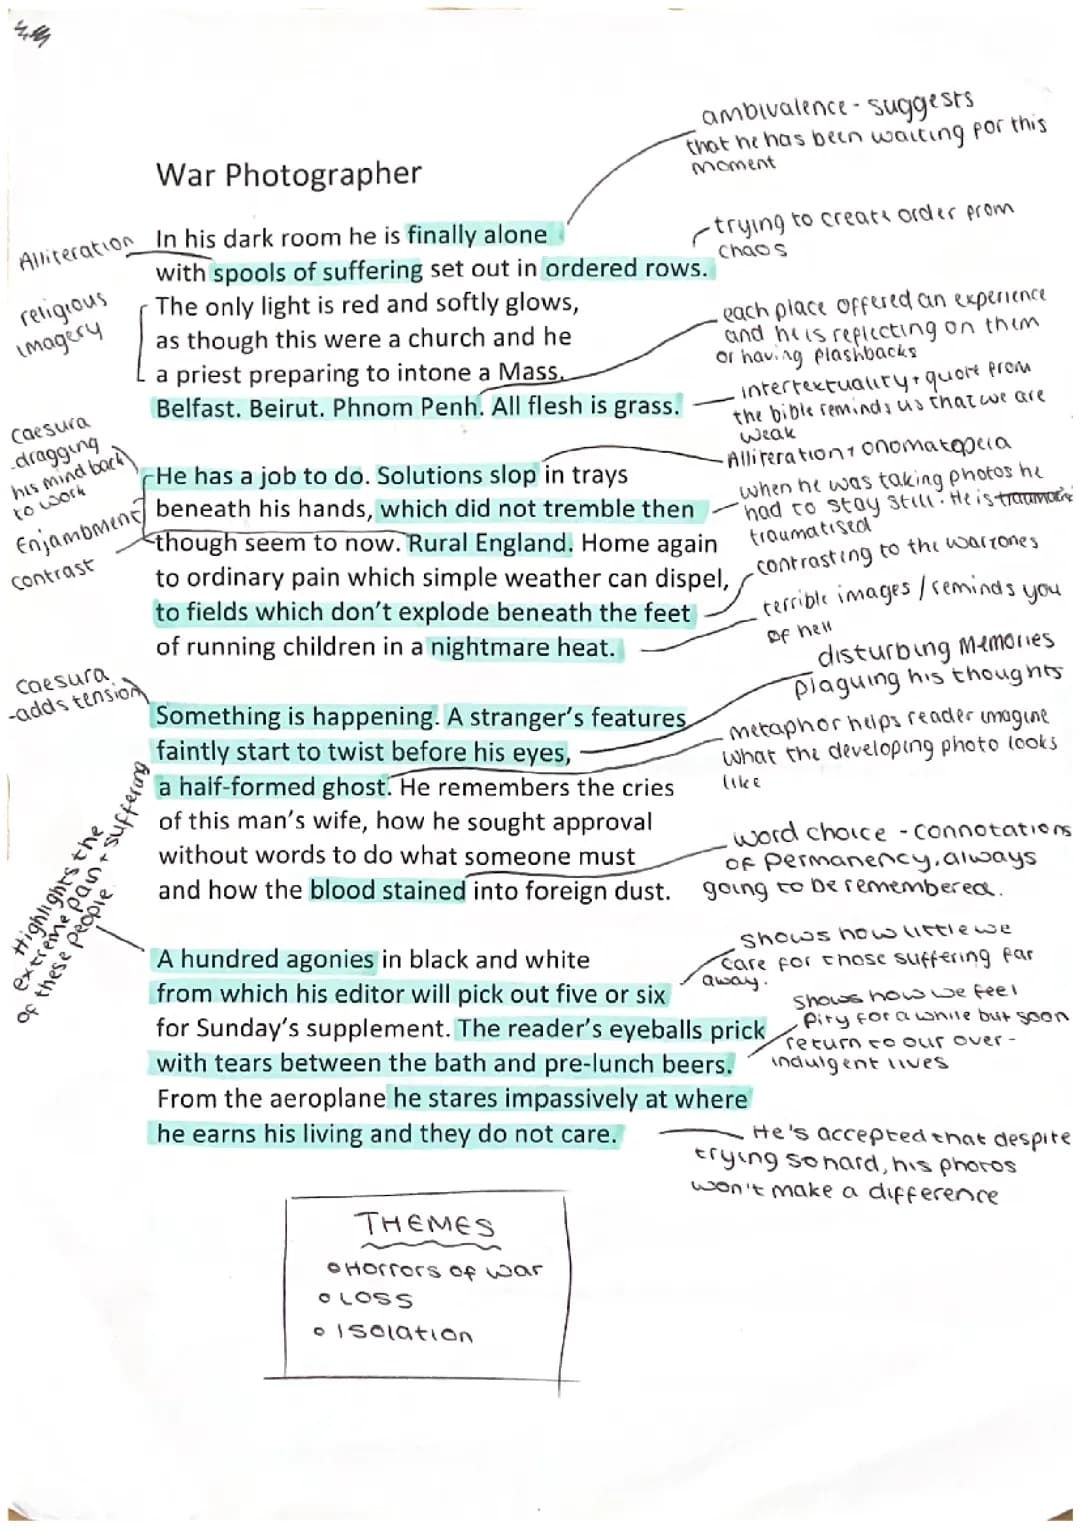 ambivalence - suggests
that he has been waiting for this
moment
War Photographer
Alliteration
In his dark room he is finally alone
with spools of suffering set out in ordered rows.
trying to create order from
chaos
religious
imagery
The only light is red and softly glows,
as though this were a church and he
a priest preparing to intone a Mass.
Belfast. Beirut. Phnom Penh. All flesh is grass.
each place offered an experience
and he is reflecting on them
or having flashbacks
intertextuality + quote from
the bible reminds us that we are
weak
Caesura
-dragging
his mind back
to work
Enjambment
contrast
He has a job to do. Solutions slop in trays
beneath his hands, which did not tremble then
though seem to now. Rural England. Home again
to ordinary pain which simple weather can dispel,
to fields which don't explode beneath the feet
of running children in a nightmare heat.
Alliteration + onomatopeia
when he was taking photos he
had to stay still. He is
traumatised
contrasting to the warzones
terrible images / reminds you
of hell
Caesura
-adds tension
Something is happening. A stranger's features
faintly start to twist before his eyes,
a half-formed ghost. He remembers the cries
of this man's wife, how he sought approval
without words to do what someone must
and how the blood stained into foreign dust.
disturbing memories
plaguing his thoughts
metaphor helps reader imagine
what the developing photo looks
like
word choice - connotations
of permanency, always
going to be remembered.
Highlights the
extreme pain + suffering
of these people.
A hundred agonies in black and white
from which his editor will pick out five or six
for Sunday's supplement. The reader's eyeballs prick
with tears between the bath and pre-lunch beers.
From the aeroplane he stares impassively at where
he earns his living and they do not care.
shows how little we
care for those suffering far
away.
shows how we feel
pity for a while but soon
return to our over-
indulgent lives
He's accepted that despite
trying so hard, his photos
won't make a difference
THEMES
• Horrors of war
• Loss
• Isolation